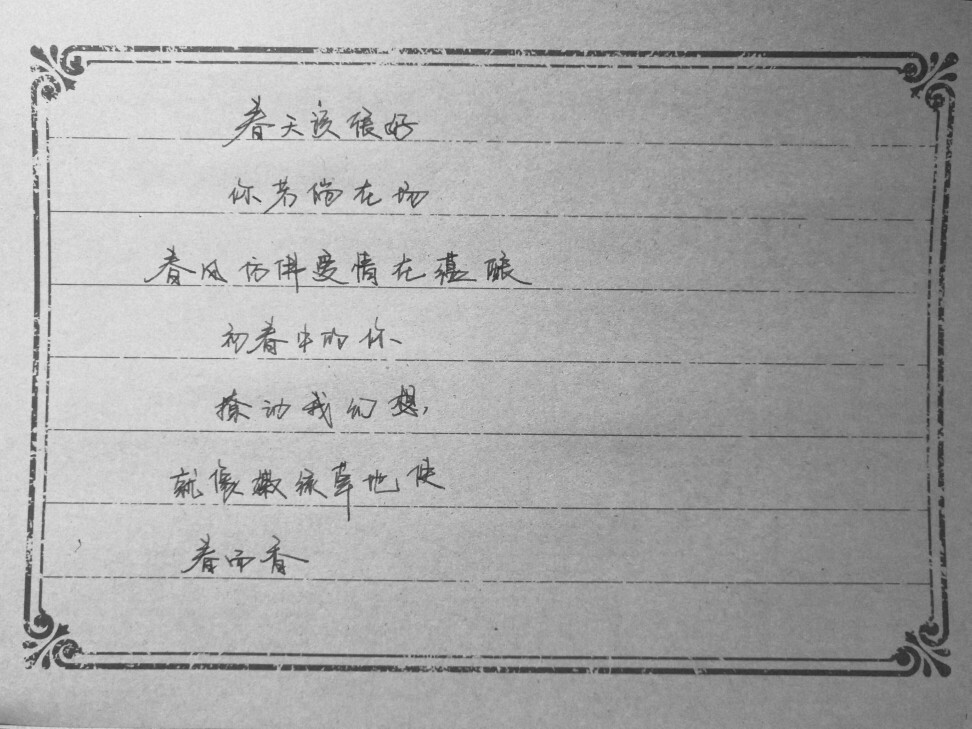 春天该很好
你若尚在场
春风仿佛爱情在蕴酿
初春中的你
撩动我幻想,
就像嫩绿草地使
春而香